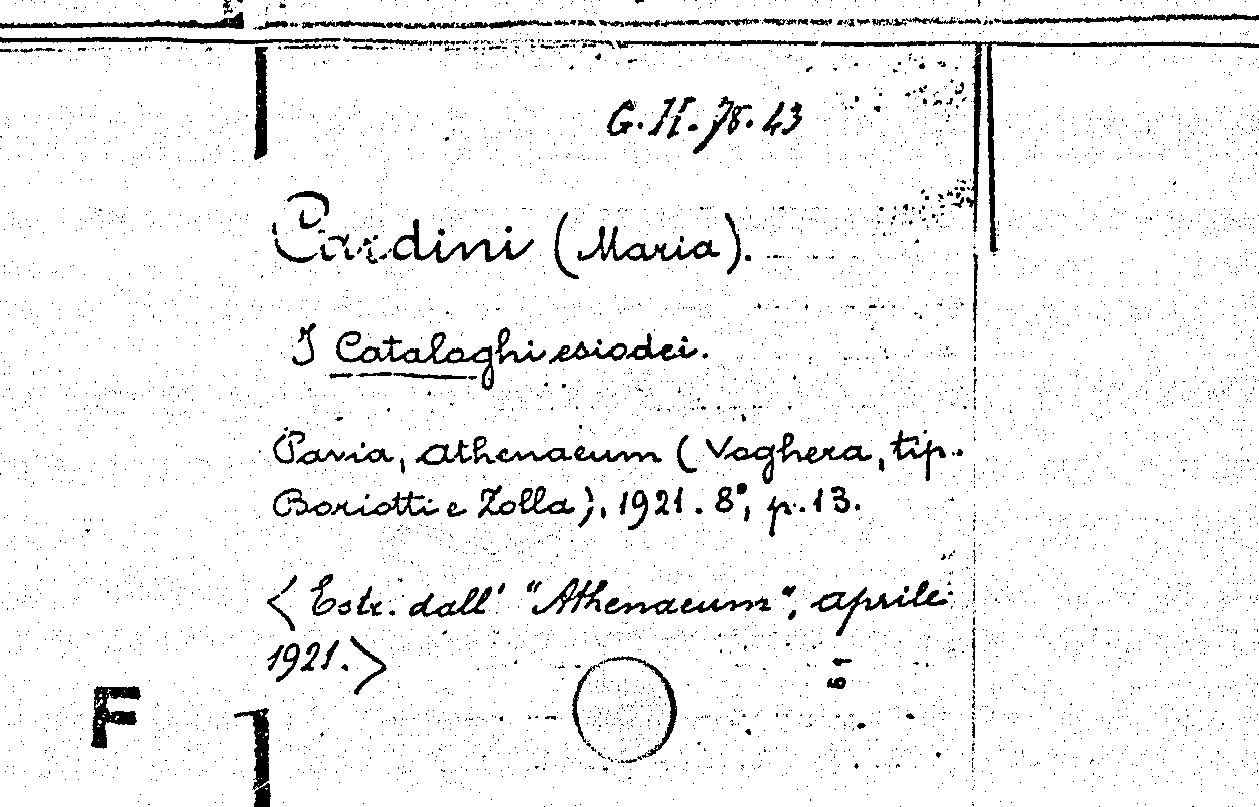 G.H.78.43
Cardini (Maria).
I Cataloghi esiodei.
Pavia, Athenaeum (Voghera, tip.
Boriotti e Zolla), 1921. 8°, p.13.
<Estr. dall' "Athenaeum", aprile
1921.>
61
F